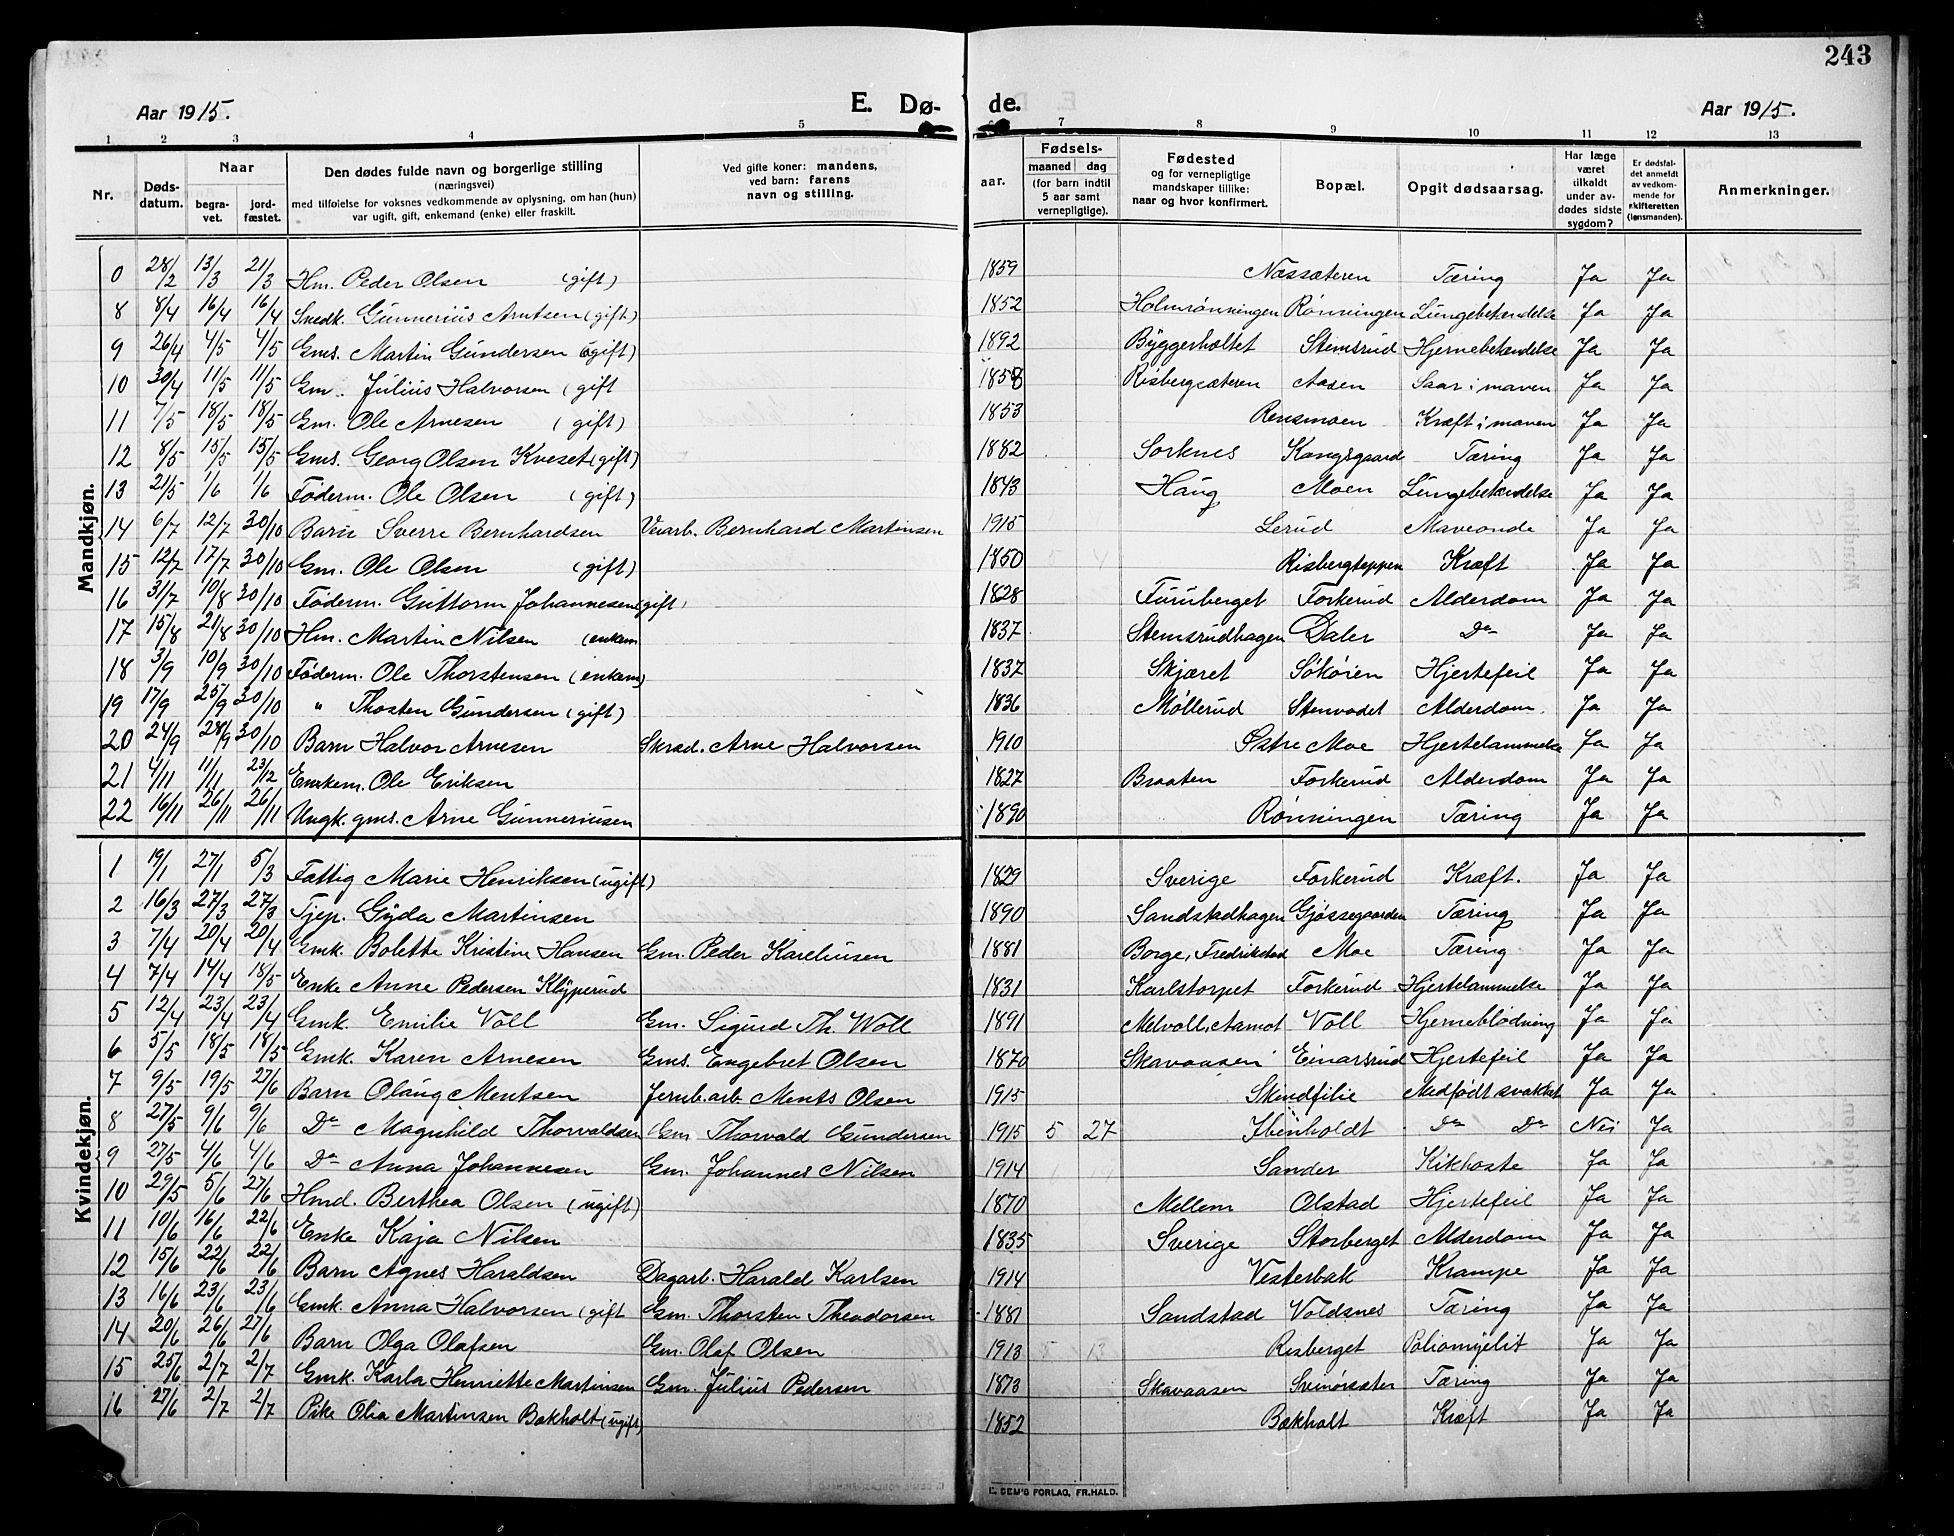 243
Aar 1915. E. Dø- de. Aar 1915.
1 2 3 4 5 7 8 9 10 11 12 13
Nr. Døds-datum. Naar begra-vet. jord-fæstet. Den dødes fulde navn og borgerlige stilling (næringsvei) med tilføielse for voksnes vedkommende av oplysning, om han (hun) var ugift, gift, enkemand (enke) eller fraskilt. Ved gifte koner: mandens, ved barn: farens navn og stilling. aar. Fødsels- maaned dag (for barn indtil 5 aar samt vernepligtige). Fødested og for vernepligtige mandskaper tillike: naar og hvor konfirmert. Bopæl. Opgit dødsaarsag. Har læge været tilkaldt under av-dødes sidste sygdom? Er dødsfal-det anmeldt av vedkom-mende for skifteretten (lensmanden). Anmerkninger.
Mandkjøn.
0 28/2 13/3 21/3 Hm. Peder Olsen (gift) 1859 Næssæteren Tæring Ja Ja
8 8/4 16/4 16/4 Snedk. Gunnerius Arntsen (gift) 1852 Holmrønningen Rønningen Lungebetændelse Ja Ja
9 26/4 4/5 4/5 Gms. Martin Gundersen (ugift) 1892 Byggerholtet Stemsrud Hjernebetændelse Ja Ja
10 30/4 11/5 11/5 Gm. Julius Halvorsen (gift 1858 Risbergsæteren Aasen Saar i maven Ja Ja
11 7/5 18/5 18/5 Gm. Ole Arnesen (gift) 1853 Rensmoen Kræft i maven Ja Ja
12 8/5 15/5 15/5 Gms. Georg Olsen Kveset (gift) 1882 Sorknes Kongsgaard Tæring Ja Ja
13 21/5 1/6 1/6 Føderm. Ole Olsen (gift) 1843 Haug Moen Lungebetændelse Ja Ja
14 6/7 12/7 30/10 Barn Sverre Bernhardsen Veiarb. Bernhard Martinsen 1915 Lerud Maveonde Ja Ja
15 12/7 17/7 30/10 Gm. Ole Olsen (gift) 1850 Risbergteppen Kræft Ja Ja
16 31/7 10/8 30/10 Føderm. Guttorm Johannesen (gift) 1828 Furuberget Forkerud Alderdom Ja Ja
17 15/8 21/8 30/10 Hm. Martin Nilsen (enkem 1837 Stemsrudhagen Daler Do Ja Ja
18 3/9 10/9 30/10 Føderm. Ole Thorstensen (enkem) 1837 Skjæret Søkøien Hjertefeil Ja Ja
19 17/9 25/9 30/10 " Thosten Gundersen (gift) 1836 Møllerud Stenvadet Alderdom. Ja Ja
20 24/9 28/9 30/10 Barn Halvor Arnesen Skræd. Arne Halvorsen 1910 Østre Moe Hjertelammelse Ja Ja
21 4/11 11/11 23/12 Enkem. Ole Eriksen 1827 Braaten Forkerud Alderdom Ja Ja
22 16/11 26/11 26/11 Ungk. gms. Arne Gunneriusen 1890 Rønningen Tæring Ja Ja
Kvindekjøn.
1 19/1 27/1 5/3 Fattig Marie Henriksen (ugift) 1829 Sverige Forkerud Kræft. Ja Ja
2 16/3 27/3 27/3 Tjep. Gyda Martinsen 1890 Sandstadhagen Gjøssegaarden Tæring Ja Ja
3 7/4 20/4 20/4 Gmk. Bolette Kristine Hansen Gm. Peder Kareliusen 1881 Borge, Fredrikstad Moe Tæring Ja Ja
4 7/4 14/4 18/5 Enke Anne Pedersen Klypperud 1831 Karlstorpet Forkerud Hjertelammelse Ja Ja
5 12/4 23/4 23/4 Gmk. Emilie Voll Gm. Sigurd Th. Woll 1891 Melvoll, Aamot Voll Hjerneblødning Ja Ja
6 5/5 18/5 18/5 Gmk. Karen Arnesen Gms. Engebret Olsen 1870 Skavaasen Einarsrud Hjertefeil Ja Ja
7 9/5 19/5 27/6 Barn Olaug Mentsen Jernb.arb. Ments Olsen 1915 Skindfilie Medfødt svakhet Ja Ja
8 27/5 9/6 9/6 Do Magnhild Thorvaldsen Gm Thorvald Gundersen 1915 5 27 Ibenholdt Do Do Nei Ja
9 27/5 4/6 4/6 Do Anna Johannesen Gm. Johannes Nilsen 1914 Sander Kikhoste Ja Ja
10 29/5 5/6 27/6 Hmd. Berthea Olsen (ugift) 1870 Mellem Olstad Hjertefeil Ja Ja
11 10/6 16/6 22/6 Enke Kaja Nilsen 1835 Sverige Storberget Alderdom Ja Ja
12 15/6 22/6 22/6 Barn Agnes Haraldsen Dagarb. Harald Karlsen 1914 Vesterbak Krampe Ja Ja
13 16/6 23/6 23/6 Gmk. Anna Halvorsen (gift Gm. Thorsten Theodorsen 1881 Sandstad Voldsnes Tæring Ja Ja
14 20/6 26/6 27/6 Barn Olga Olafsen Gm. Olaf Olsen 1913 Risberget Poliomyelit Ja Ja
15 25/6 2/7 2/7 Gmk. Karla Henriette Martinsen Gm. Julius Pedersen 1873 Skavaasen Svinørsæter Tæring Ja Ja
16 27/6 2/7 2/7 Pike Olia Martinsen Bækholt (ugift) 1852 Bækholt Kræft Ja Ja
E. SEM'S FORLAG, FR.HALD.